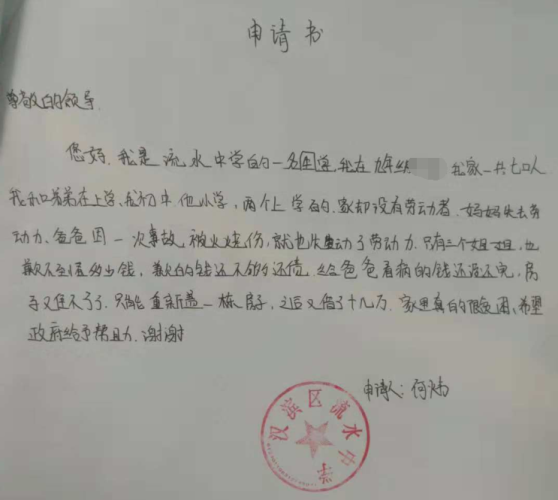 申请书
尊敬的领导
您好,我是流水中学的一名同学,我在九年级 我家一共七口人
我和弟弟在上学,我初中他小学,两个上学的,家却没有劳动者.妈妈失去劳
动力,爸爸因一次事故,被火烧伤,就也失去动了劳动力.只有三个姐姐,也
赚不到多少钱,赚的钱还不够还债,给爸爸看病的钱还没还完,房
子又住不了了.只能重新盖一栋房子,之后又借了十几万.家里真的很贫困,希望
政府给予帮助.谢谢
申请人:何炜
汉滨区流水中学